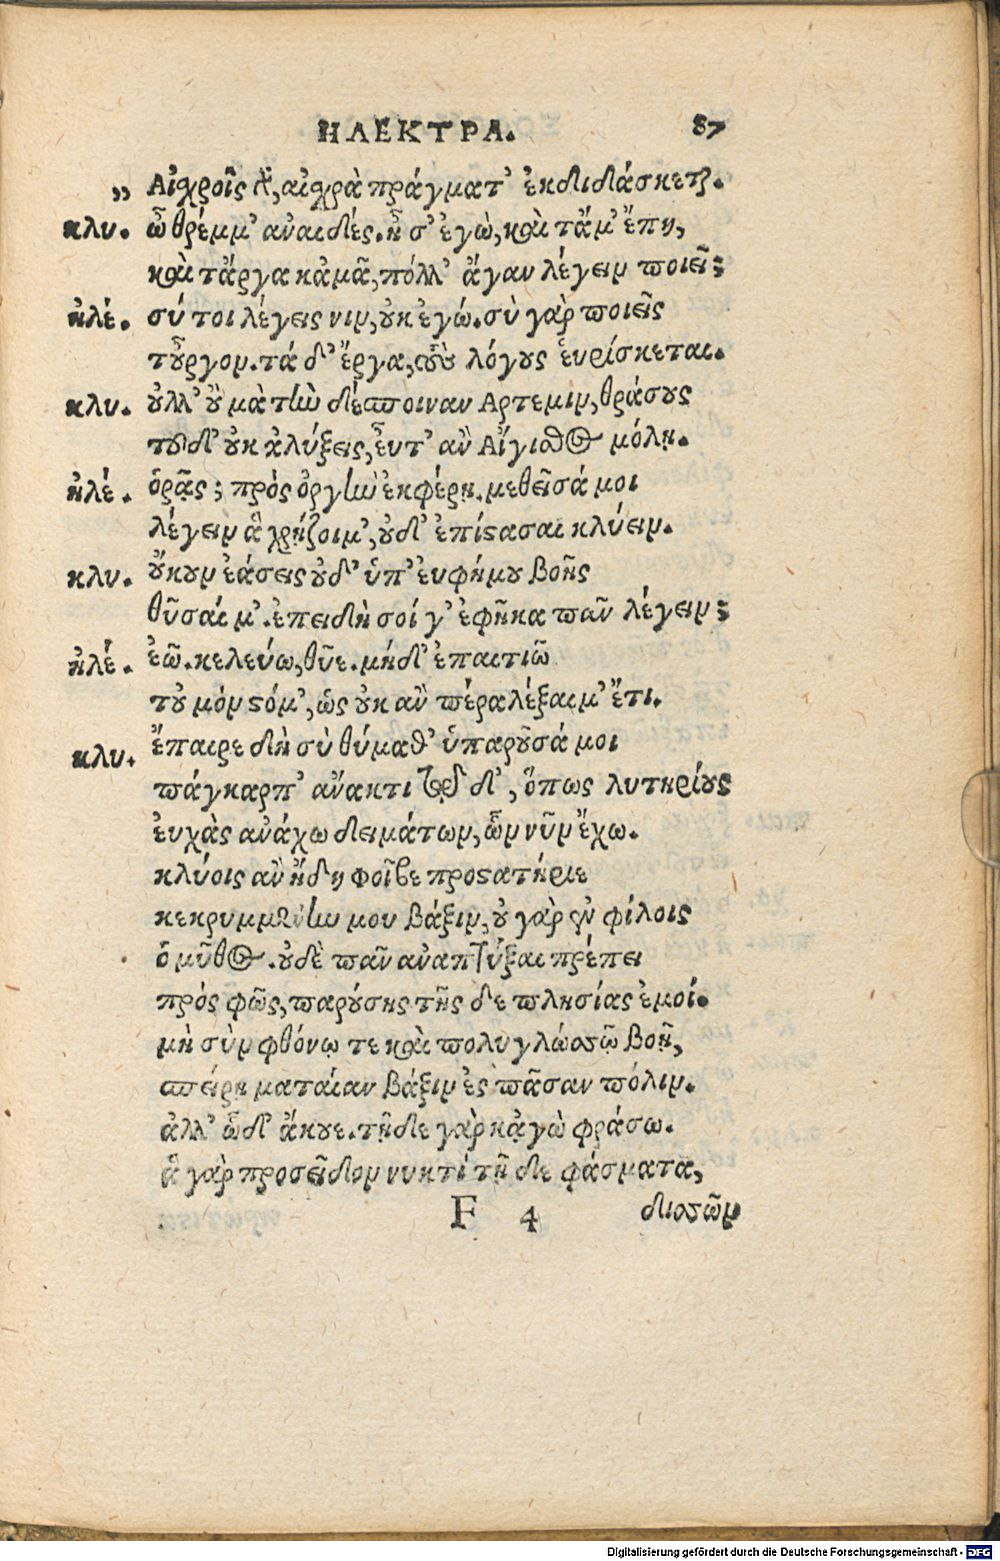 ΗΛΕΚΤΡΑ. 87
„ Αἰσχροῖς γὰρ, αἰσχρὰ πράγματ' ἐκδιδάσκεται.
κλυ. ὦ θρέμμ' ἀναιδές. ἦ σ' ἐγὼ, καὶ τἄμ' ἔπη,
καὶ τἄργα κἀμᾶ, πόλλ' ἄγαν λέγειν ποιεῖ;
ἠλέ. σύ τοι λέγεις νιν, οὐκ ἐγώ. σὺ γὰρ ποιεῖς
τοὖργον. τά δ' ἔργα, τοὺς λόγους εὑρίσκεται.
κλυ. οὐλλ' οὐ μὰ τὴν δέσποιναν Αρτεμιν, θράσους
τοῦδ' οὐκ ἀλύξεις, εὖτ' ἂν Αἴγισθος μόλῃ.
ἠλέ. ὁρᾷς; πρὸς ὀργὴν ἐκφέρῃ. μεθεῖσά μοι
λέγειν ἃ χρῄζοιμ', οὐδ' ἐπίστασαι κλύειν.
κλυ. οὔκουν ἐάσεις οὐδ' ὑπ' εὐφήμου βοῆς
θῦσαί μ'. ἐπειδὴ σοί γ' ἐφῆκα πᾶν λέγειν;
ἠλέ. ἐῶ. κελεύω, θῦε. μήδ' ἐπαιτιῶ
τοὐ μὸν στόμ', ὡς οὐκ ἂν πέρα λέξαιμ' ἔτι.
κλυ. ἔπαιρε δὴ σὺ θύμαθ' ὑπαροῦσά μοι
πάγκαρπ' ἄνακτι τῷδ', ὅπως λυτηρίους
εὐχὰς ἀνάχω δειμάτων, ὧν νῦν ἔχω.
κλύοις ἂν ἤδη φοῖβε προστατήριε
κεκρυμμένην μου βάξιν, οὐ γὰρ ἐν φίλοις
ὁ μῦθος. οὐδὲ πᾶν ἀναπτύξαι πρέπει
πρὸς φῶς, παρούσης τῆς δε πλησίας ἐμοί.
μὴ σὺν φθόνῳ τε καὶ πολυγλώσσῳ βοῇ,
σπείρῃ ματαίαν βάξιν ἐς πᾶσαν πόλιν.
ἀλλ' ὧδ' ἄκουε. τῇδε γὰρ κἀγὼ φράσω.
ἃ γὰρ προσεῖδον νυκτί τῇ δε φάσματα,
F 4 δισσῶν
Digitalisierung gefördert durch die Deutsche Forschungsgemeinschaft - DFG